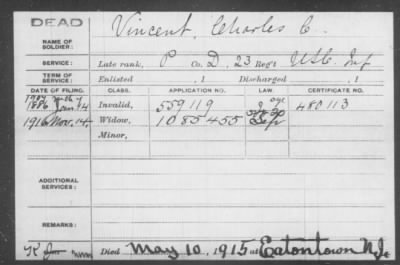 DEAD
NAME OF SOLDIER:
Vincent, Charles C.
SERVICE:
Late rank, P Co. D, 23 Reg't U.S.C. Inf
TERM OF SERVICE:
Enlisted , 1 Discharged , 1
DATE OF FILING. CLASS. APPLICATION NO. LAW. CERTIFICATE NO.
1907 Feb 7 age
1886 Jan. 4 Invalid, 559119 480113
1916 Nov. 14. Widow, 1085455
Minor,
ADDITIONAL SERVICES:
REMARKS:
Died May 10, 1915 at Eatontown N.J.